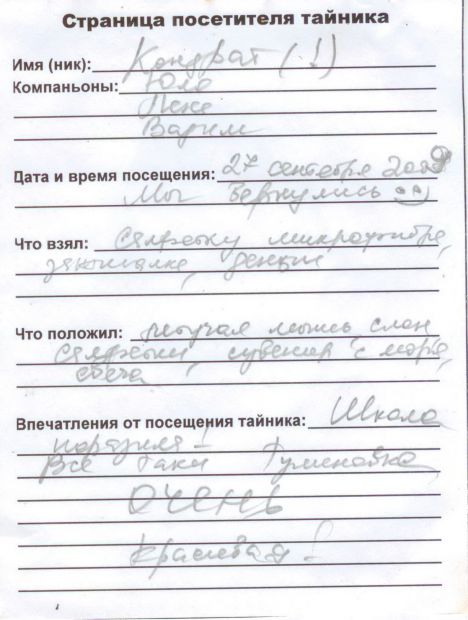 Страница посетителя тайника
Имя (ник): Кондрат (!)
Компаньоны: Юля
Леке
Вадим
Дата и время посещения: 27 сентября 2009
Мы вернулись
Что взял: микроутюбре,
деньги
Что положил: летучая мышь, слон
сувенир с моря,
свеча
Впечатления от посещения тайника: Школа
поразила!
Все таки Гуменовка
ОЧЕНЬ
красивая!